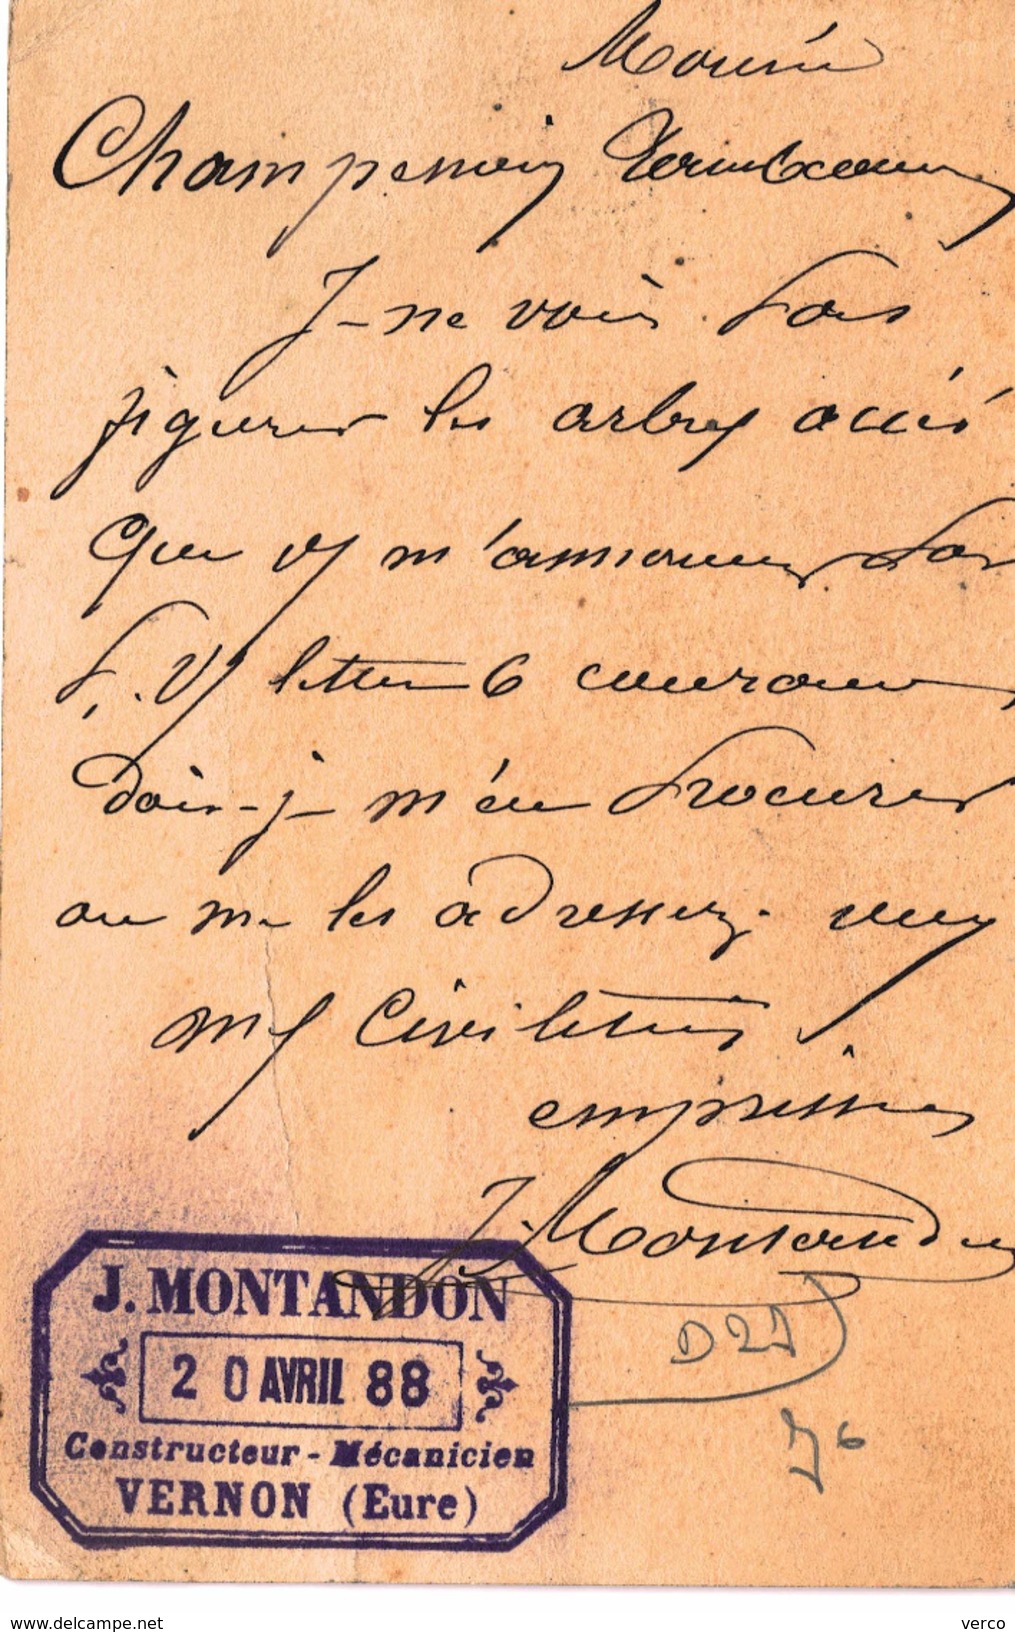 Messieurs
Champenois
Je ne vois pas
figurer les arbres aciés
que vs m'annoncez par
p. Vs lettre 6 courant,
dois-je m'en procurer
ou me les adressez.
mes civilités
empressées
J. Montandon
J. MONTANDON
20 AVRIL 88
Constructeur - Mécanicien
VERNON (Eure)
D27
J6
www.delcampe.net
verco